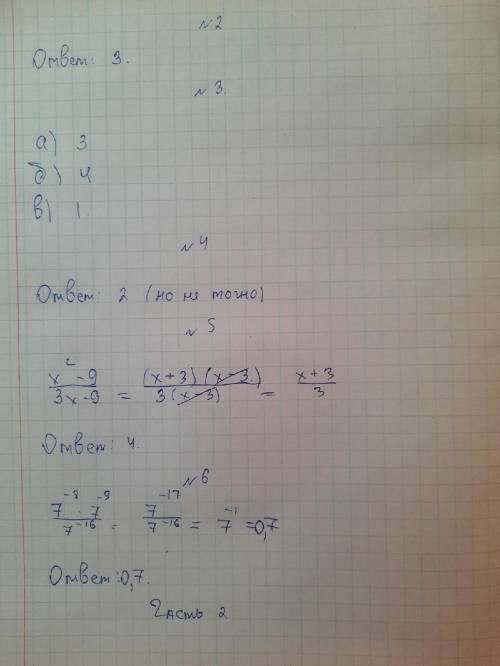 №2
Ответ: 3.
№3.
а) 3
б) 4
в) 1.
№4
Ответ: 2 (но не точно.)
№5
x² - 9 / 3x - 9 = (x + 3)(x - 3.) / 3(x - 3) = x + 3 / 3
Ответ: 4.
№6
7⁻⁸ · 7⁻⁹ / 7⁻¹⁶ = 7⁻¹⁷ / 7⁻¹⁶ = 7⁻¹ = 0,7
Ответ: 0,7.
Часть 2